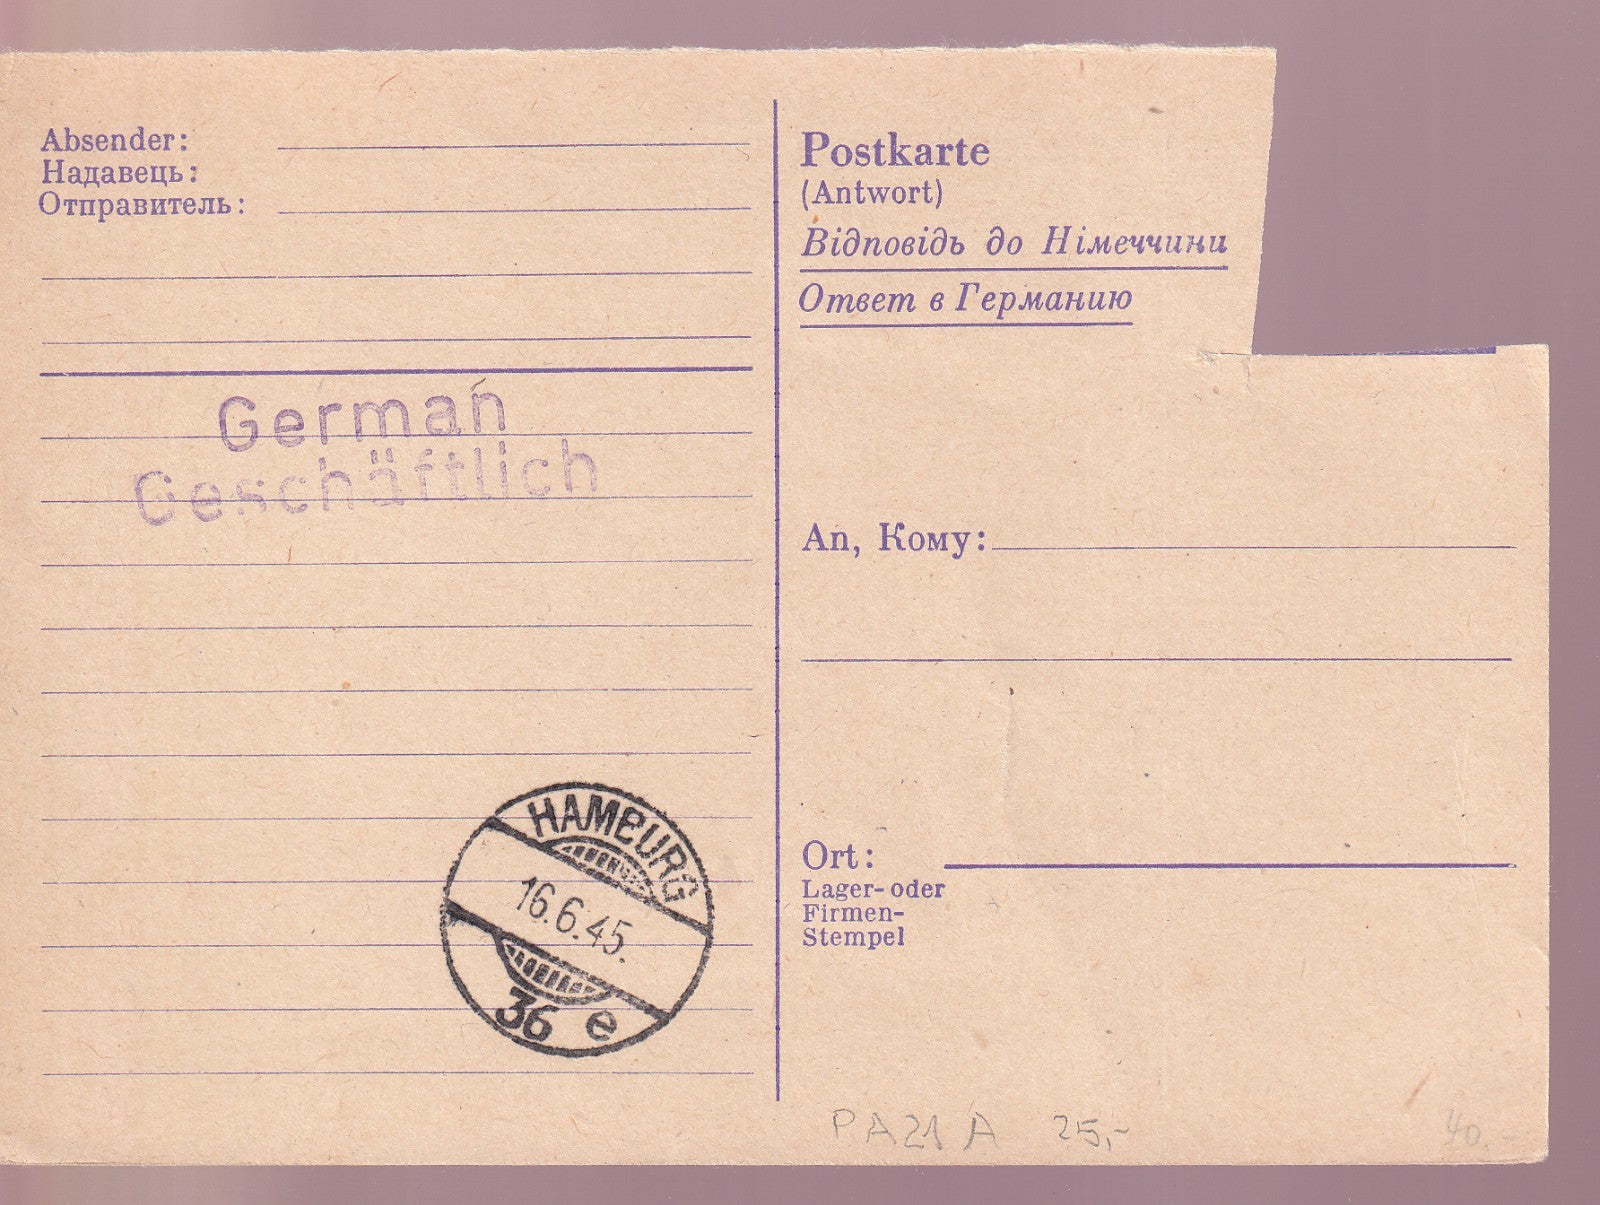 Absender:
Надавець:
Отправитель:
German
Geschäftlich
HAMBURG
16.6.45.
36 e
Postkarte
(Antwort)
Відповідь до Німеччини
Ответ в Германию
An, Кому:
Ort:
Lager- oder
Firmen-
Stempel
PA21 A 25,-
40.-